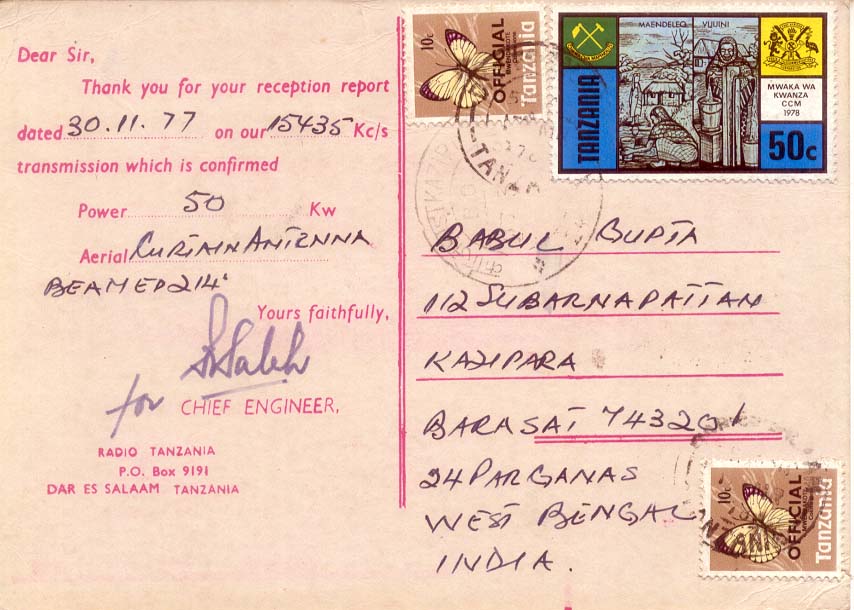 Dear Sir,
Thank you for your reception report
dated 30.11.77 on our 15435 Kc/s
transmission which is confirmed
Power 50 Kw
Aerial CURTAIN ANTENNA
BEAMED 214°
Yours faithfully,
S Saleh
for CHIEF ENGINEER,
RADIO TANZANIA
P.O. Box 9191
DAR ES SALAAM TANZANIA
10c
OFFICIAL
Tanzania
MAENDELEO VIJIJINI
TANZANIA
MWAKA WA
KWANZA
CCM
1978
50c
TANZA
BABUL GUPTA
112 SUBARNAPATTAN
KAZIPARA
BARASAT 743201
24 PARGANAS
WEST BENGAL
INDIA.
10c
OFFICIAL
Tanzania